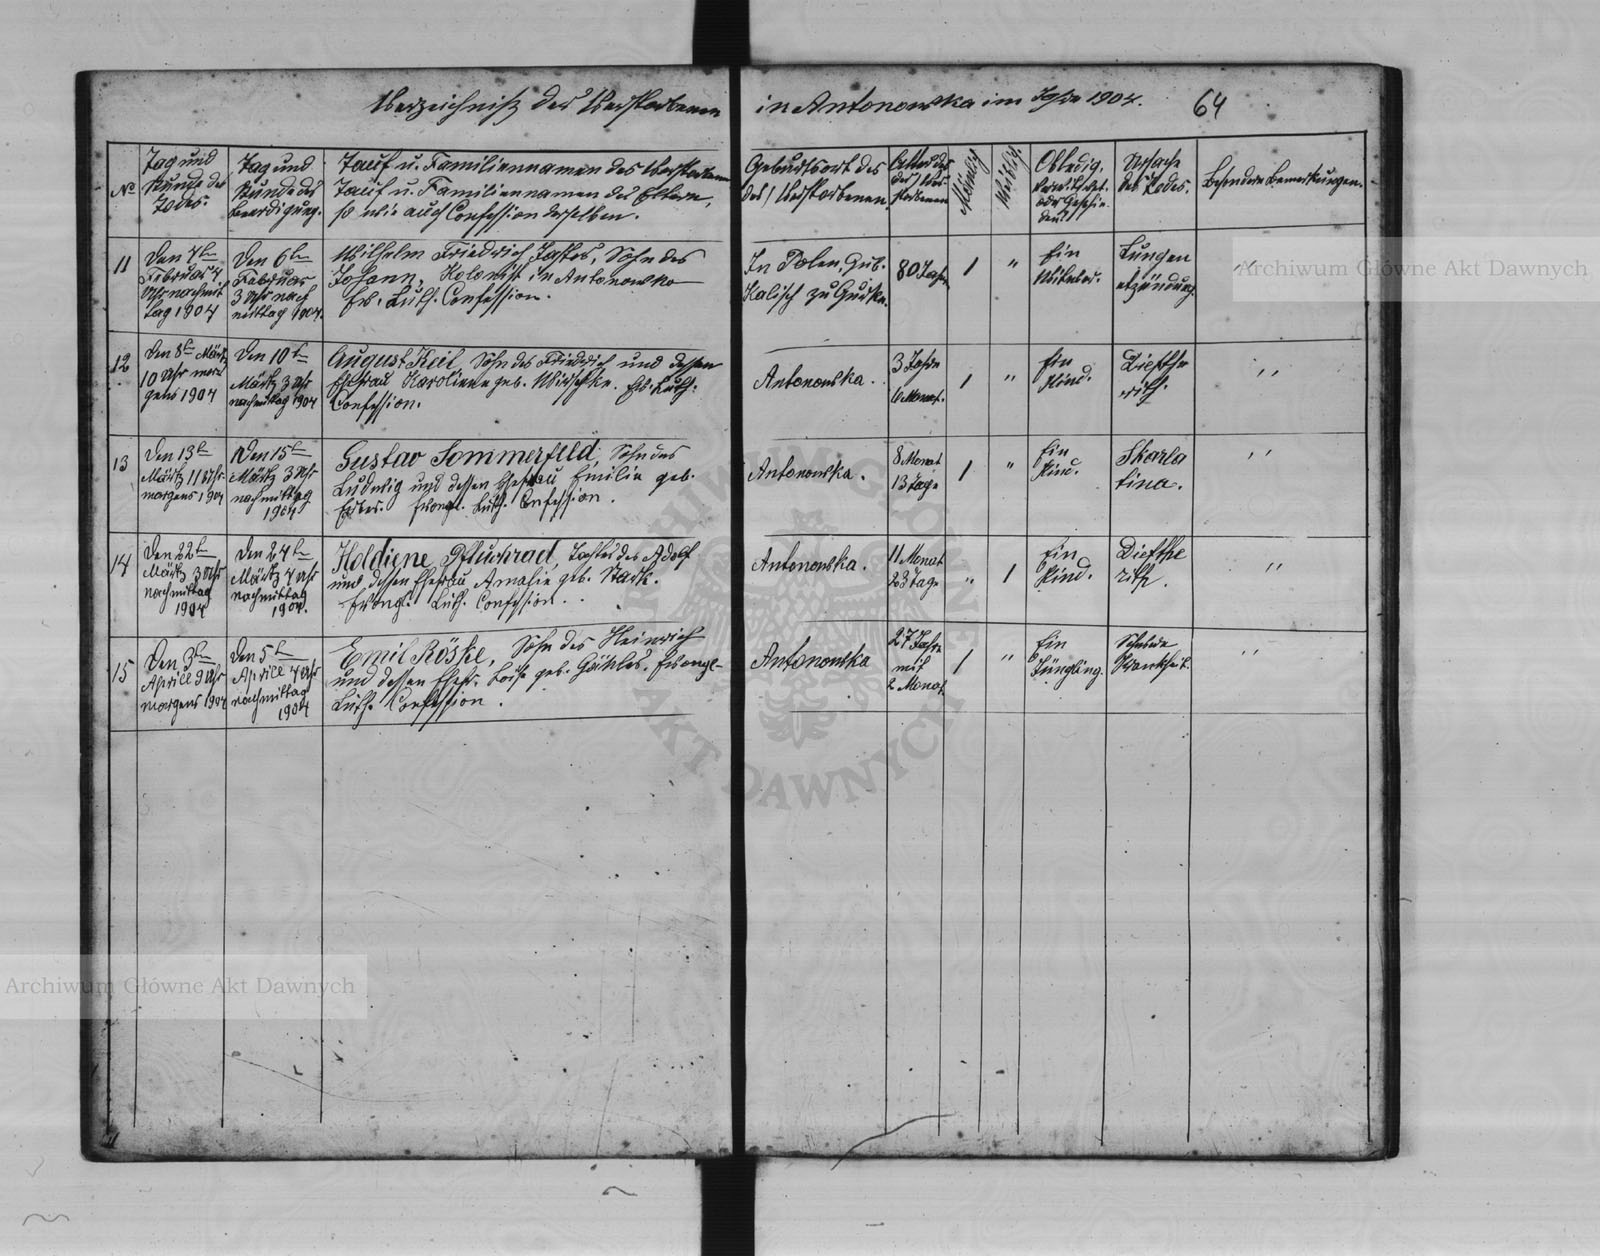 Verzeichniß der Verstorbenen in Antonowka im Jahre 1904. 64
№
Tag und
Stunde des
Todes.
Tag und
Stunde der
Beerdigung.
Tauf u. Familiennamen des Verstorbenen
Tauf u. Familiennamen der Eltern,
so wie auch Confession derselben.
Geburtsort des
des Verstorbenen
Alter des
der Ver-
storbenen
Männlig
Weiblig
Ob ledig,
verwitwet
oder Geschie
den
Ursache
des Todes.
Besondere Bemerkungen.
11
Den 4ten
Februar 4
Uhr nachmit
tag 1904
Den 6ten
Februar
3 Uhr nach
mittag 1904.
Wilhelm Friedrich Sohn des
Johann, Kolonist in Antonowka
Ev. Luth. Confession.
In Polen, Gub.
Kalisch zu
80 Jahr
1
"
Ein
Witwer.
Lungen
etzündung
"
12
Den 8ten Märtz
10 Uhr mor
gens 1904
Den 10ten
Märtz 3 Uhr
nachmittag 1904
August Keil Sohn des Friedrich und dessen
Ehefrau Karoliene geb. Ev. Luth.
Confession.
Antonowka.
3 Jahr
6 Monat.
1
"
Ein
Kind.
Diefthe
rith.
"
13
Den 13ten
Märtz 11 Uhr
morgens 1904
Den 15ten
Märtz 3 Uhr
nachmittag
1904
Gustav Sommerfeld, Sohn des
Ludwig und dessen Ehefrau Emilie geb.
Evangl. Luth. Confession.
Antonowka.
8 Monat
13 Tage
1
"
Ein
Kind.
Skarla
tina.
"
14
Den 22ten
Märtz 3 Uhr
nachmittag
1904
Den 24ten
Märtz 4 Uhr
nachmittag
1904.
Holdiene Pfluchrad, Tochter des Adolf
und dessen Ehefrau Amalie geb. Stark.
Evangl. Luth. Confession.
Antonowka.
11 Monat
23 Tage
"
1
Ein
Kind.
Diefthe
rith.
"
15
Den 3ten
Aprill 9 Uhr
morgens 1904
Den 5ten
Aprill 4 Uhr
nachmittag
1904
Emil Röske, Sohn des Heinrich
und dessen Ehefr. Luise geb. Evangl-
Luth. Confession.
Antonowka
27 Jahr
mit
2 Monat
1
"
Ein
Jüngling.
Krankheit.
"
Archiwum Główne Akt Dawnych
Archiwum Główne Akt Dawnych
ARCHIWUM GŁÓWNE
AKT DAWNYCH